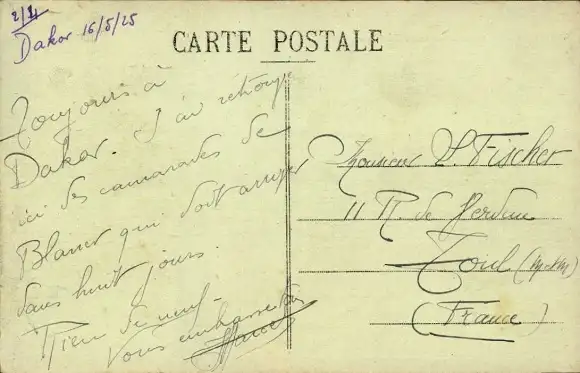 2/4
Dakar 16/5/25
CARTE POSTALE
Toujours à
Dakar. J'ai retrouvé
ici des camarades de
qui doit arriver
dans huit jours.
Rien de neuf.
Vous embrasse
Monsieur L. Fischer
11 R. de Verdun
Toul (M-et-M)
(France)